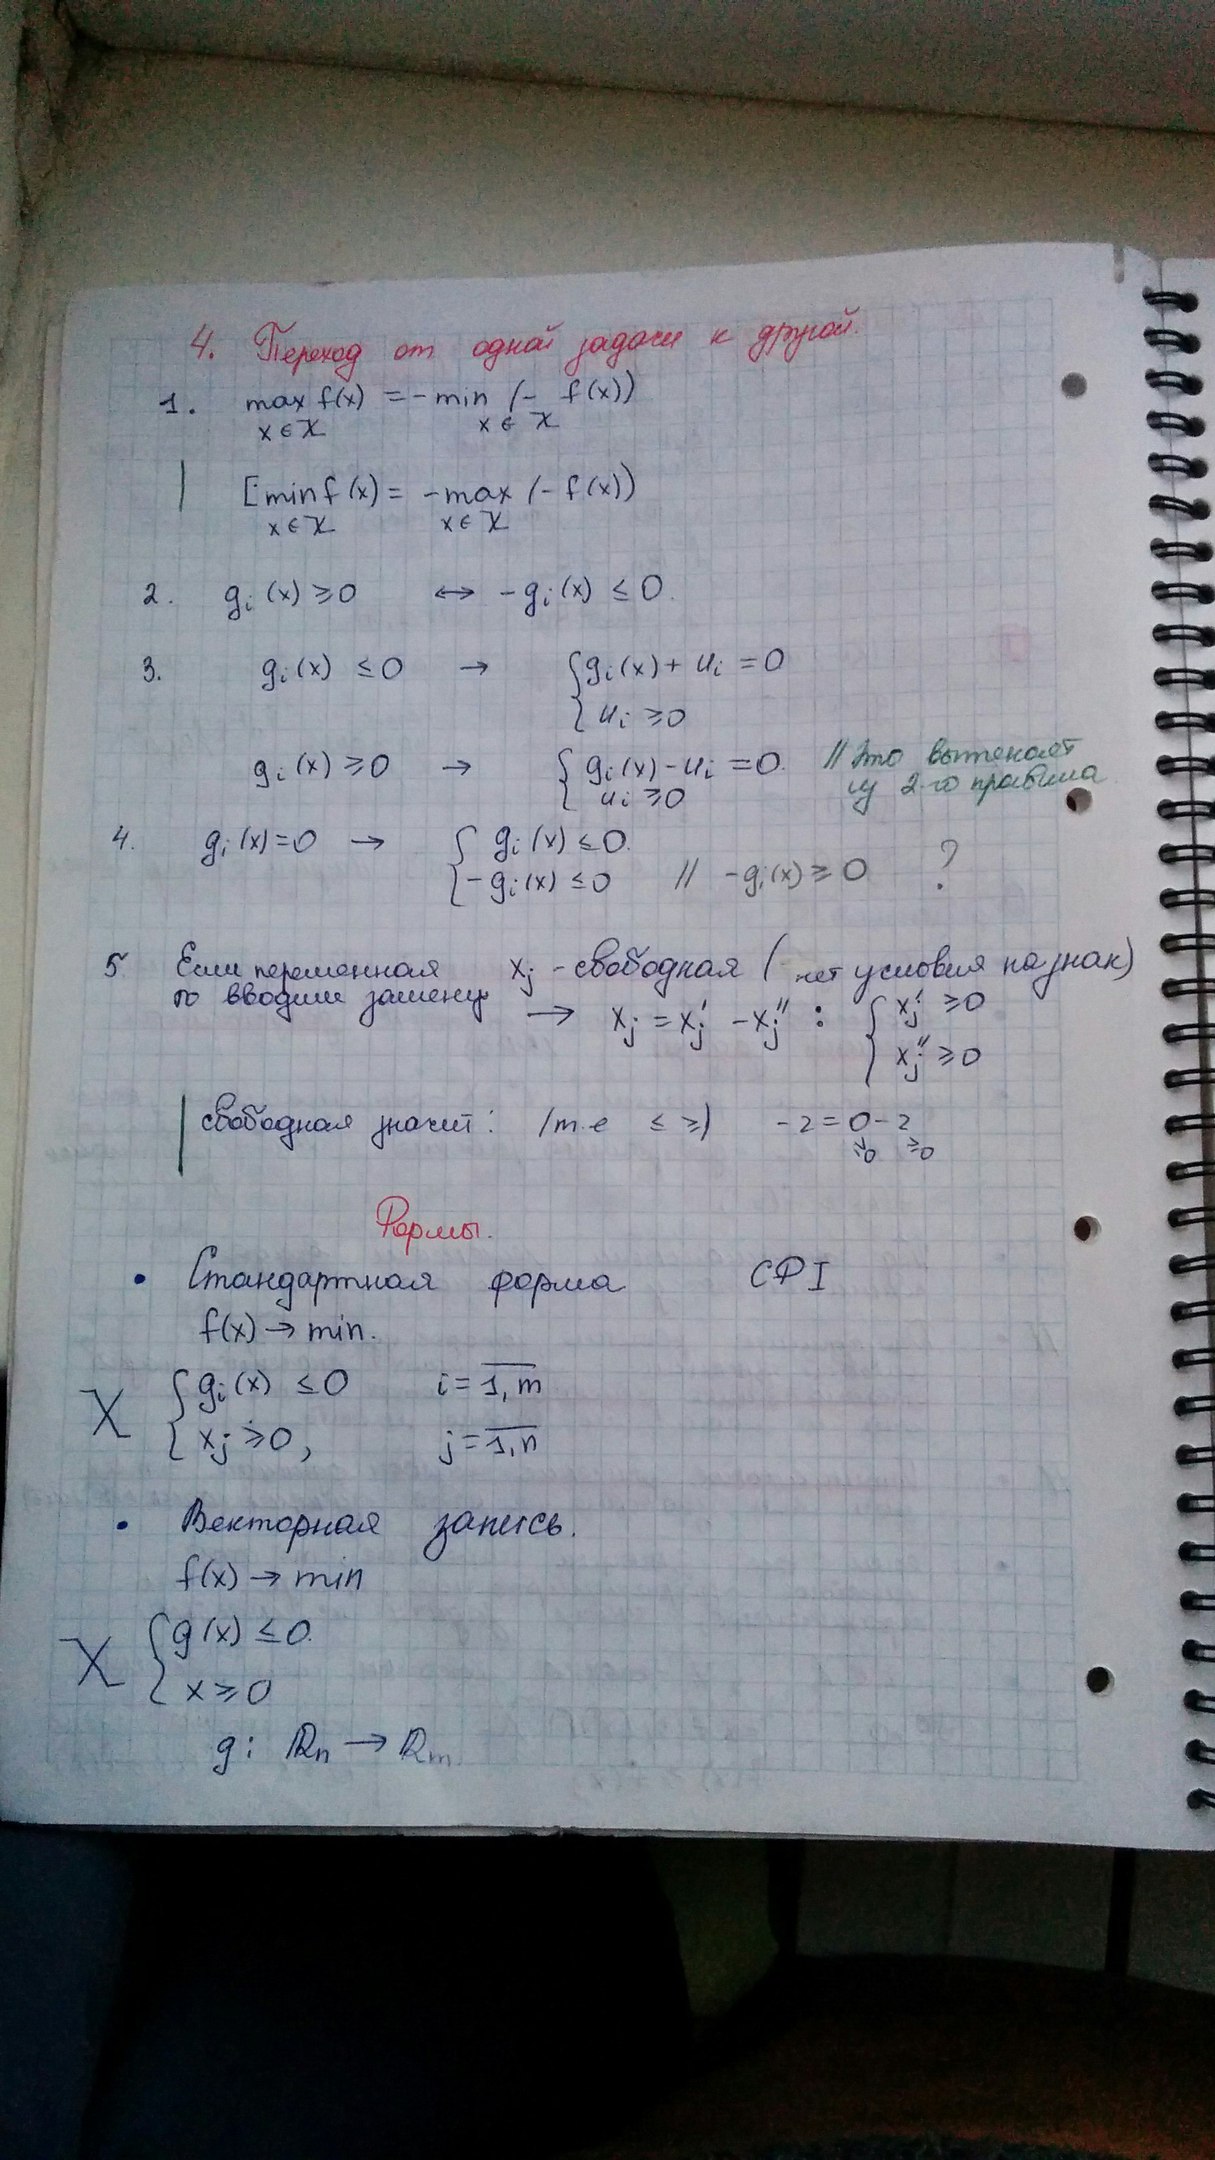 4. Переход от одной задачи к другой.
1. max f(x) = - min (- f(x))
x∈X x∈X
[min f(x) = -max (-f(x))
x∈X x∈X
2. gi(x) ≥ 0 ↔ -gi(x) ≤ 0.
3. gi(x) ≤ 0 → { gi(x) + ui = 0
ui ≥ 0
gi(x) ≥ 0 → { gi(x) - ui = 0. // Это вытекает
ui ≥ 0 из 2-го правила
4. gi(x) = 0 → { gi(x) ≤ 0.
-gi(x) ≤ 0 // -gi(x) ≥ 0 ?
5 Если переменная xj - свободная (нет условия на знак)
то вводим замену → xj = xj' - xj'' : { xj' ≥ 0
xj'' ≥ 0
свободная значит: (т.е ≤ ≥) -2 = 0 - 2
≥0 ≥0
Формы.
• Стандартная форма СФI
f(x) → min.
X { gi(x) ≤ 0 i = 1, m
xj ≥ 0, j = 1, n
• Векторная запись.
f(x) → min
X { g(x) ≤ 0.
x ≥ 0
g: ℝn → ℝm